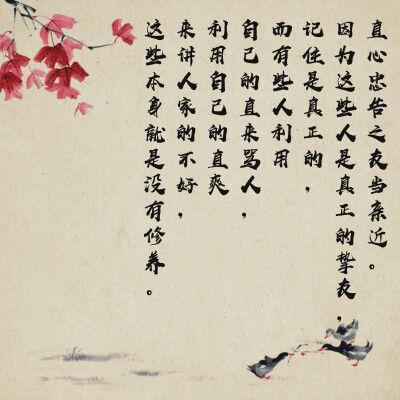 直心忠告之友当亲近。
因为这些人是真正的挚友，
记住是真正的，
而有些人利用
自己的直来骂人，
利用自己的直爽
来讲人家的不好，
这些本身就是没有修养。